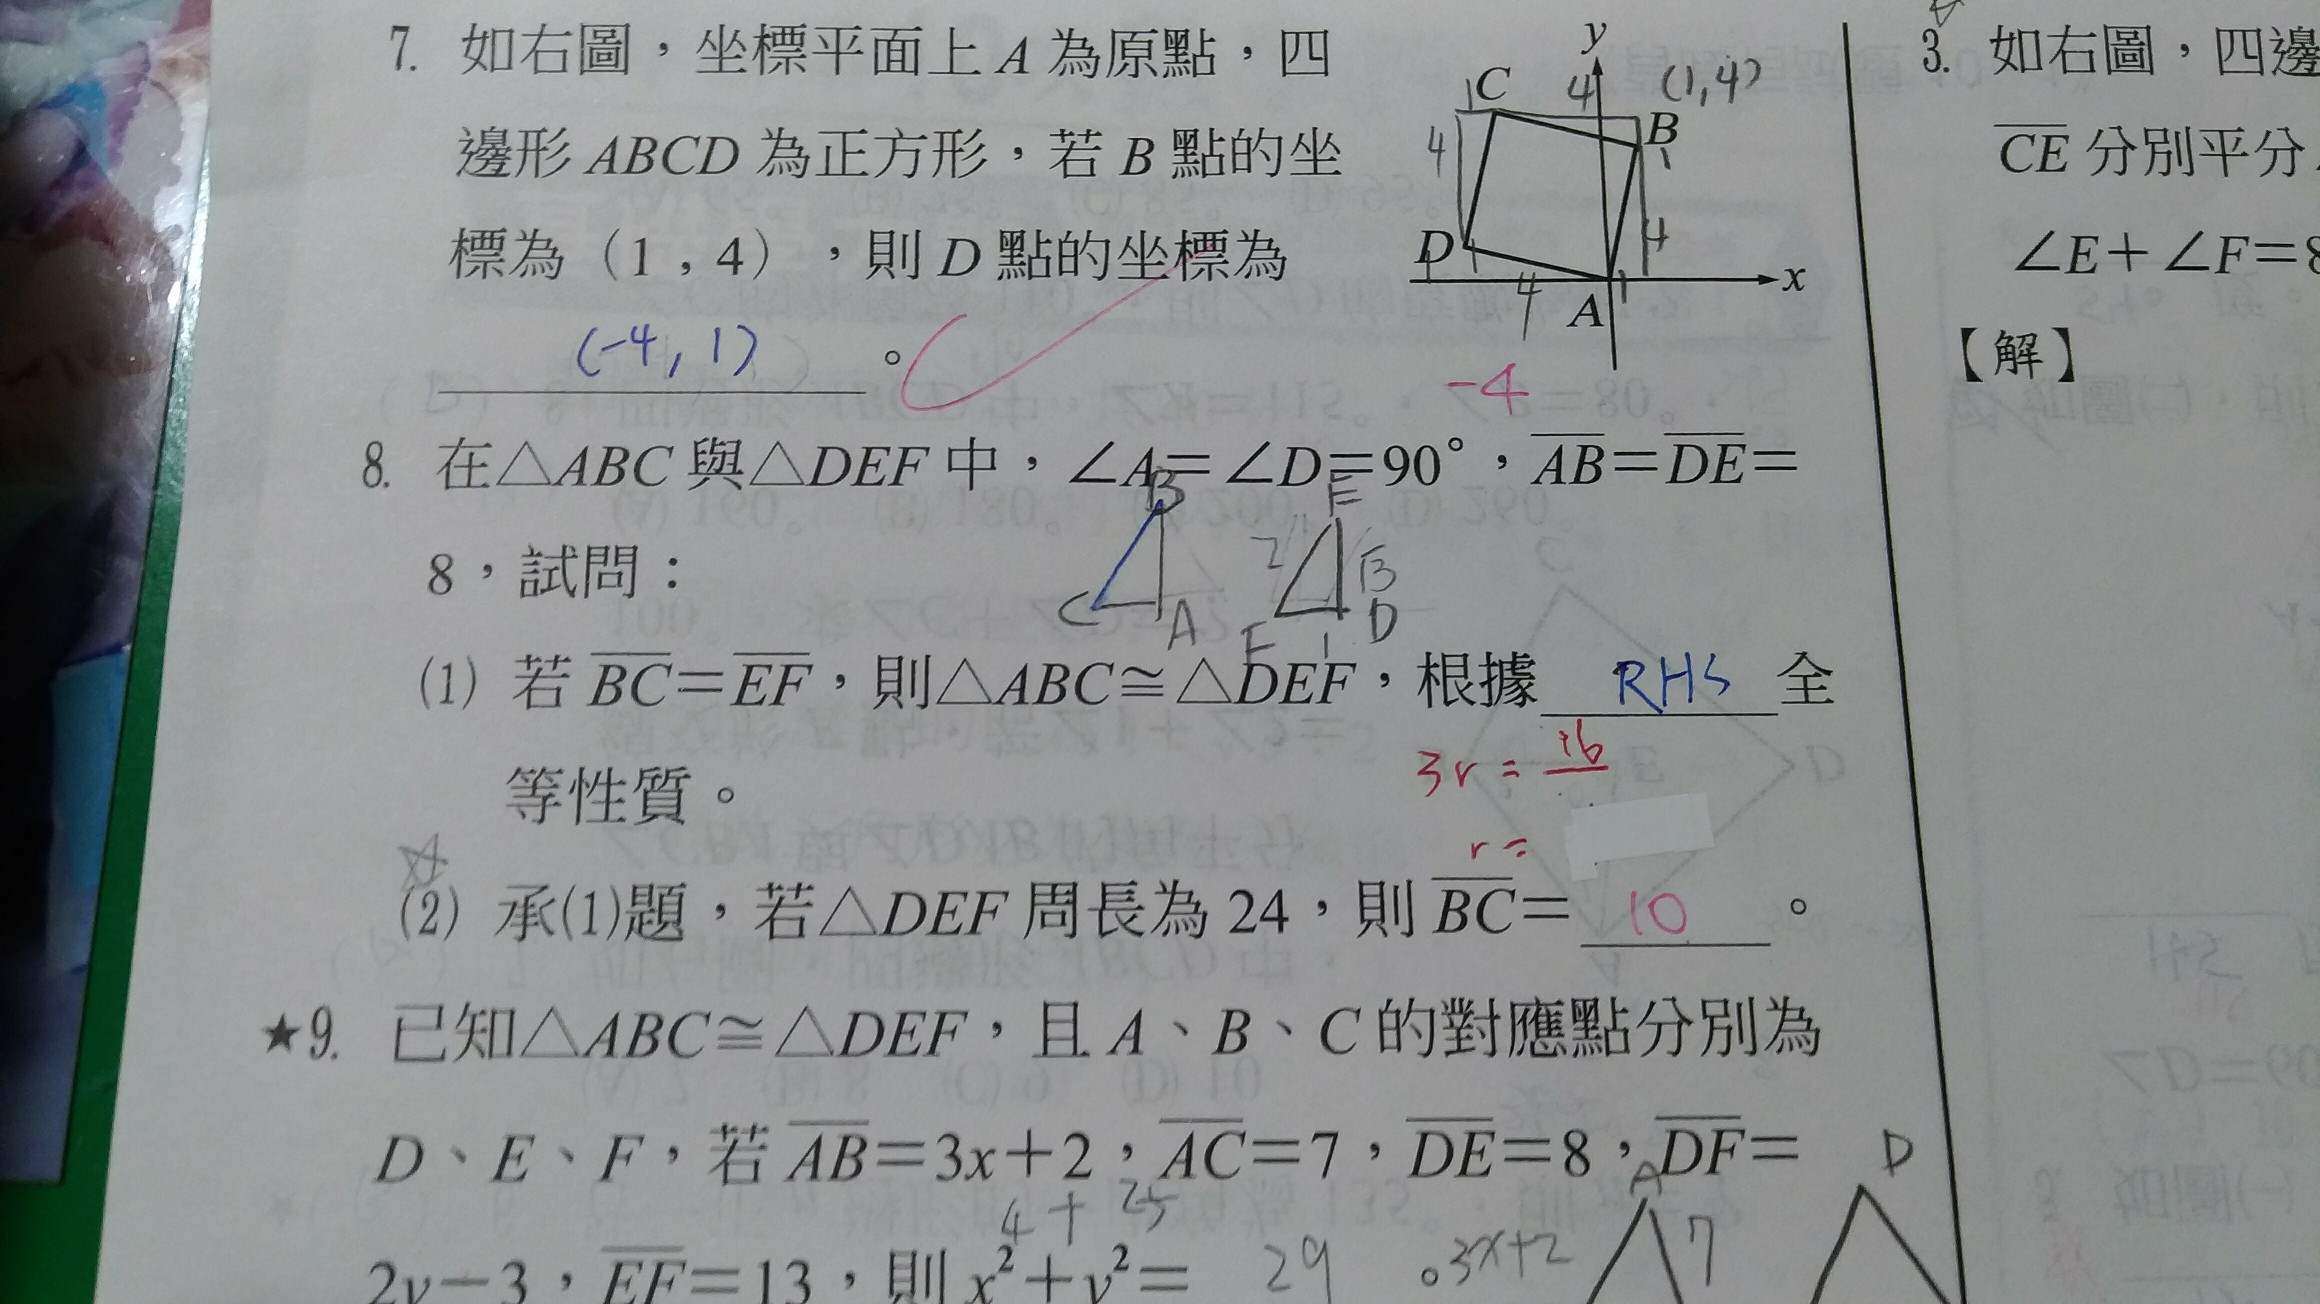 7. 如右圖，坐標平面上 A 為原點，四
邊形 ABCD 為正方形，若 B 點的坐
標為（1，4），則 D 點的坐標為
(-4, 1)。
y
C
4
(1,4)
1
B
4
1
4
D
1
x
4
A
1
-4
8. 在△ABC 與△DEF 中，∠A=∠D=90°，AB=DE=
8，試問：
B
E
2
√3
C
A
F
1
D
(1) 若 BC=EF，則△ABC≅△DEF，根據 RHS 全
等性質。
3r = 16
r =
(2) 承(1)題，若△DEF 周長為 24，則 BC= 10 。
★9. 已知△ABC≅△DEF，且 A、B、C 的對應點分別為
D、E、F，若 AB=3x+2，AC=7，DE=8，DF=
4+25
2y-3，EF=13，則 x²+y²= 29 。
3x+2
A
7
D
3. 如右圖，四邊
CE 分別平分
∠E+∠F=8
【解】